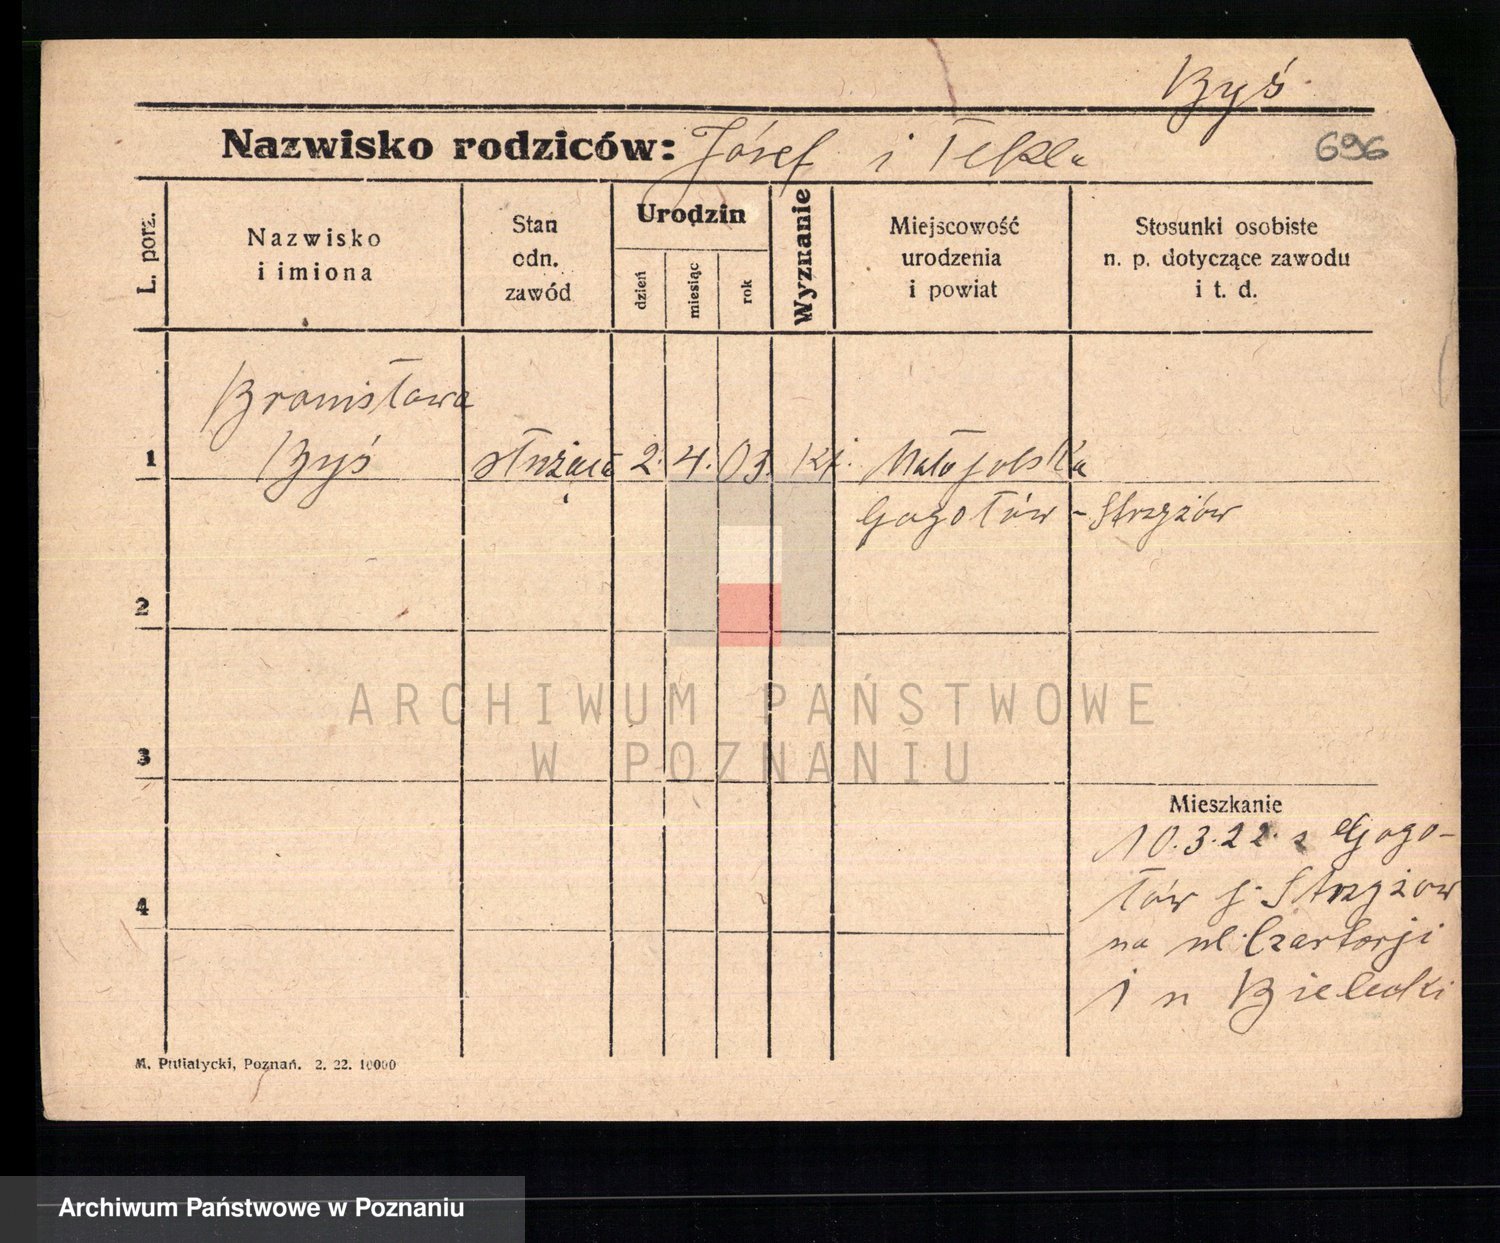 Byś
Nazwisko rodziców: Józef i Tekla
696
L. porz.
Nazwisko
i imiona
Stan
odn.
zawód
Urodzin
dzień
miesiąc
rok
Wyznanie
Miejscowość
urodzenia
i powiat
Stosunki osobiste
n. p. dotyczące zawodu
i t. d.
Bronisława
1 Byś służąca 2. 4. 03. kt. Małopolska
Gogołów - Strzyżów
2
3
4
Mieszkanie
10.3.22. z Gogo-
łów p. Strzyżow
na ul. Czartorji
1 n
M. Putiatycki, Poznań. 2. 22. 10000
ARCHIWUM PAŃSTWOWE
W POZNANIU
Archiwum Państwowe w Poznaniu